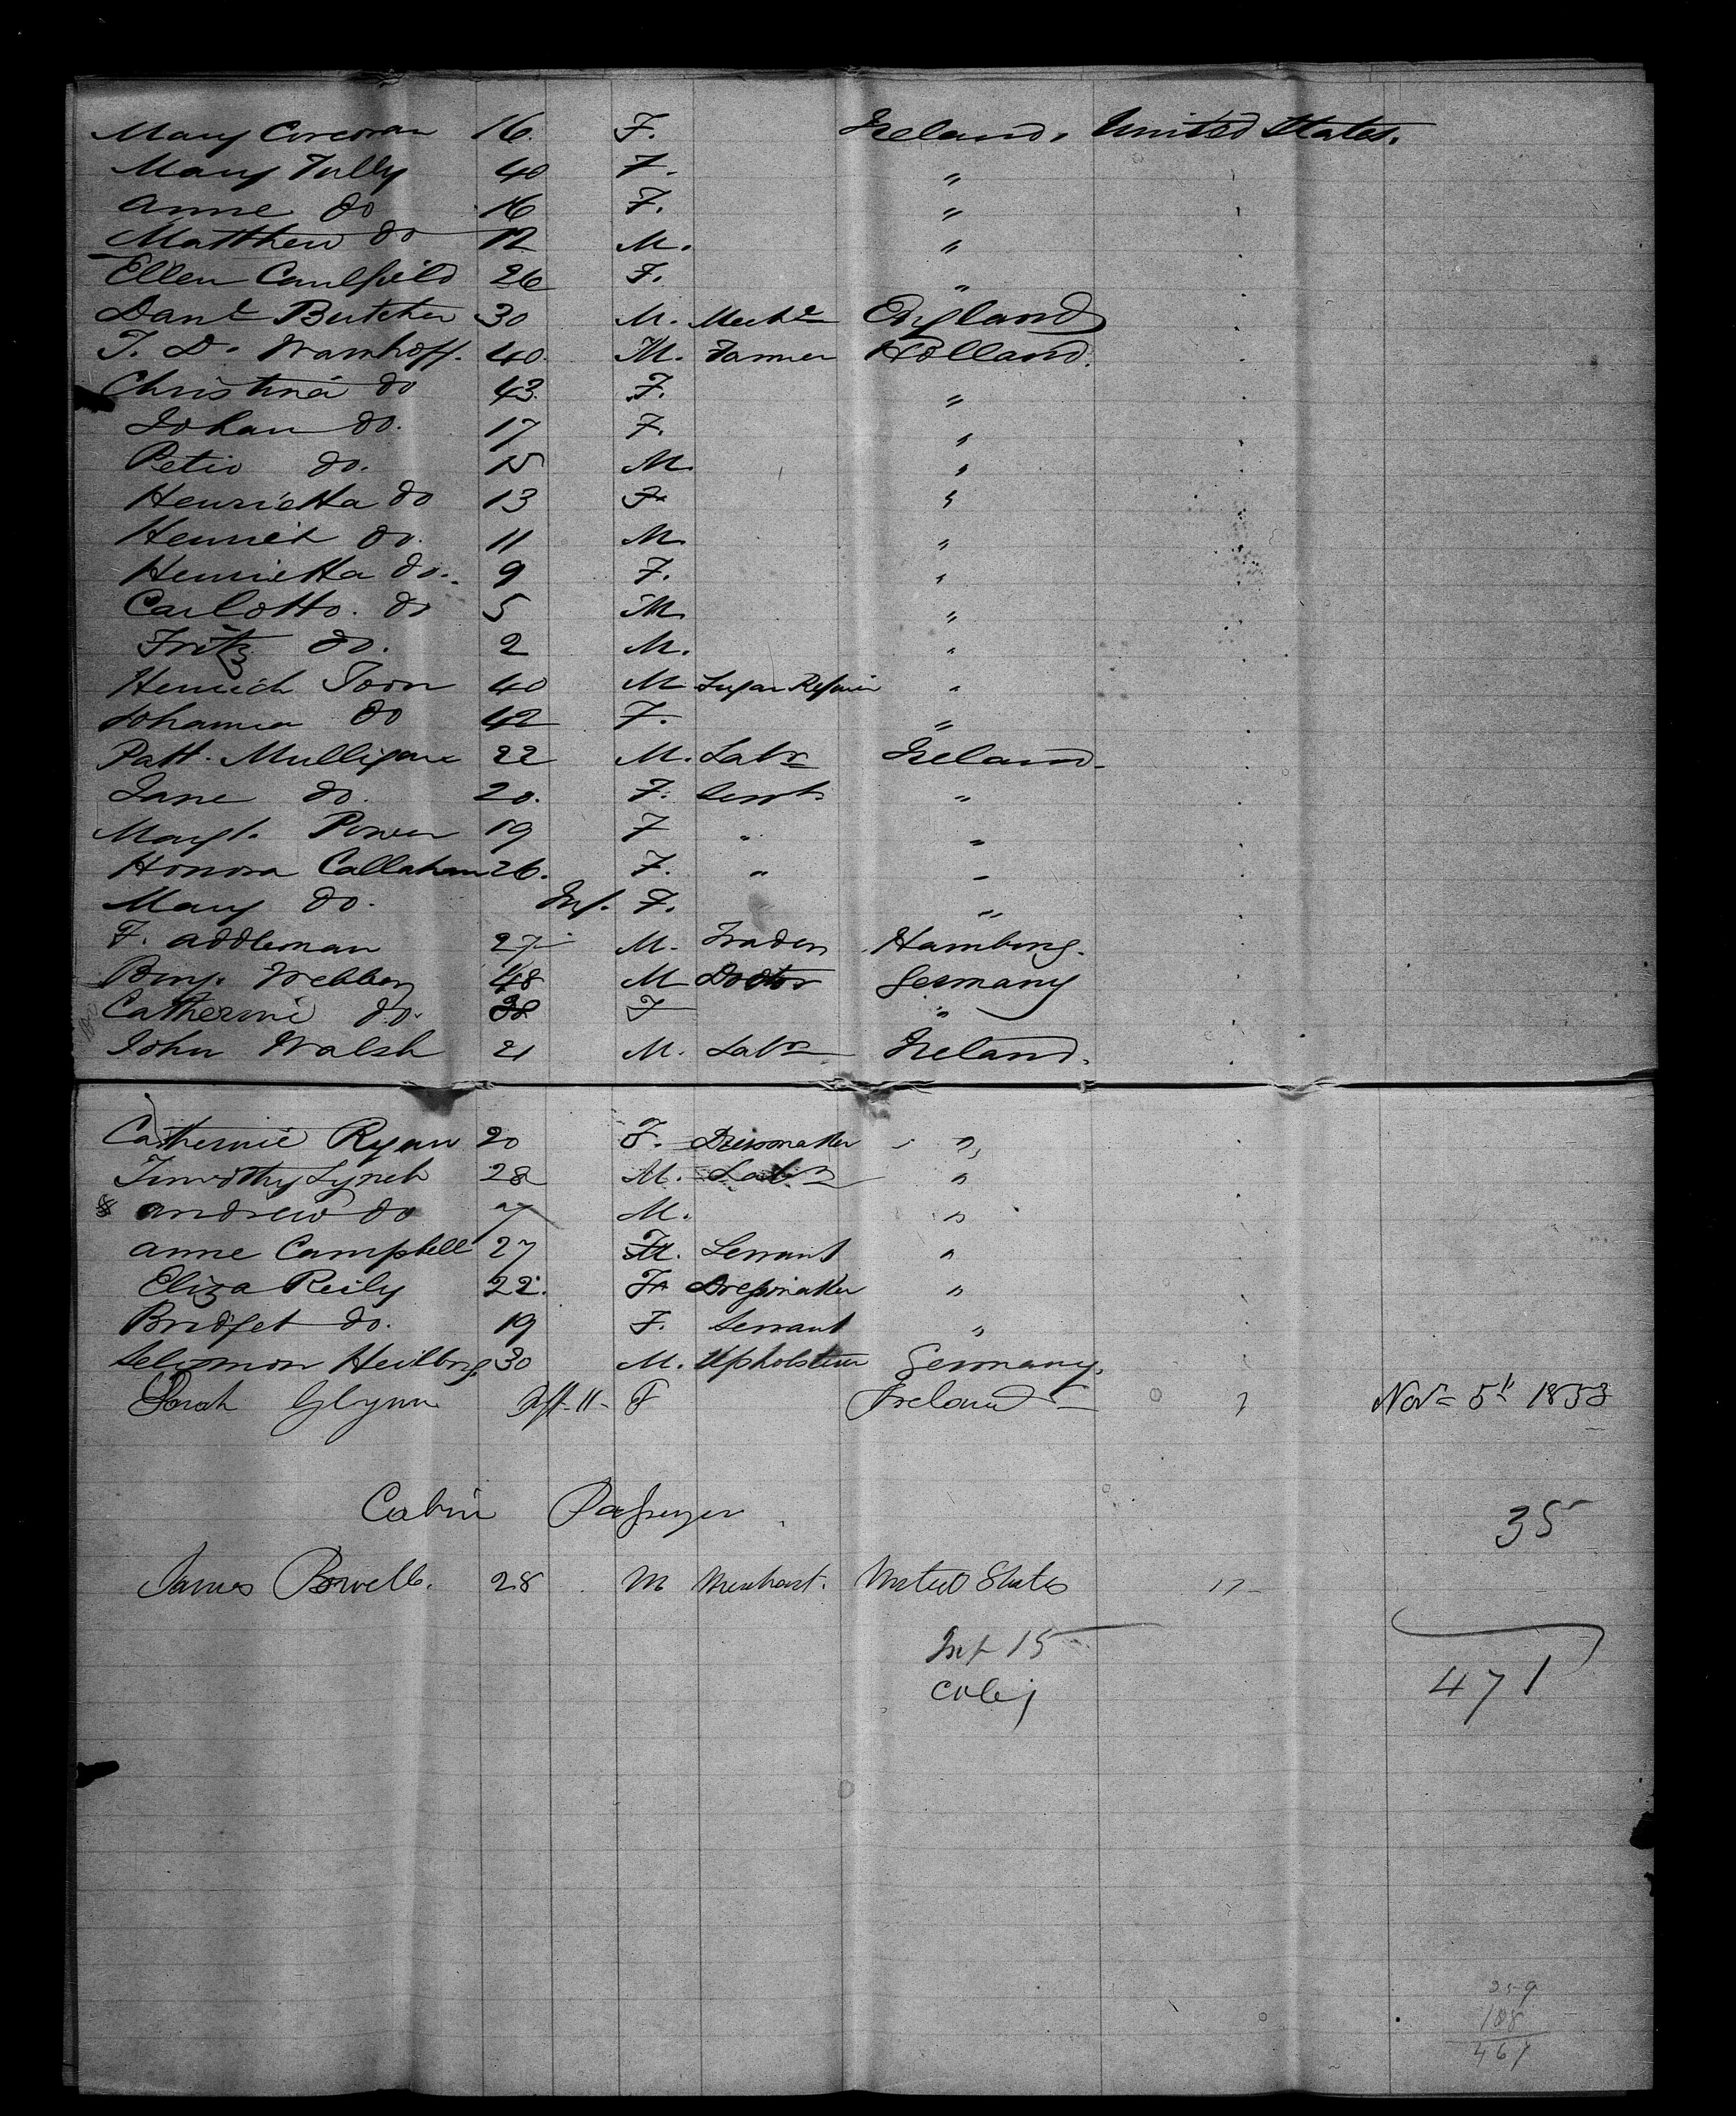 Mary Corcoran 16. F. Ireland, United States.
Mary Tully 40 F. "
Anne do 16 F. "
Matthew do 12 M. "
Ellen Caulfield 26 F. "
Danl Butcher 30 M. Mechc England
T. D. Wamhoff. 40. M. Farmer Holland.
Christina do 43. F. "
Johan do. 17 F. "
Petio do. 15 M. "
Henrietta do 13 F. "
Henrich do. 11 M. "
Henrietta do. 9 F. "
Carlotto. do 5 M. "
Fritz do. 2 M. "
Henrich Joon 40 M Sugar Refiner "
Johanna do 42 F. "
Patt. Mulligan 22 M. Labr Ireland.
Jane do. 20. F. Servt "
Margt. Power 19 F " "
Honora Callahan 26. F. " "
Mary do. Inf. F. "
F. Addleman 27 M. Trader Hamburg.
Benj. Webber 48 M Doctor Germany
Catherine do. F "
John Walsh 21 M. Labr Ireland.
Catherine Ryan 20 F. Dressmaker "
Timothy Lynch 28 M. Labr "
Andrew do 27 M. "
Anne Campbell 27 F. Servant "
Eliza Reily 22. F. Dressmaker "
Bridget do. 19 F. Servant "
Solomon Heilborg. 30 M. Upholsterer Germany.
Sarah Glynn Inft - 11 - F Ireland " Novr 5th 1853
Cabin Passenger
35
James Powell. 28 M Merchant. United States "
Inf 15
471
259
188
467